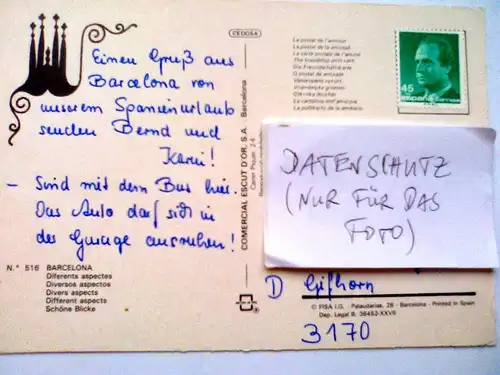 CEDOSA
Einen Gruß aus
Barcelona von
unserem Spanienurlaub
senden Bernd und
Karin!
– Sind mit dem Bus hier.
Das Auto darf sich in
der Garage ausruhen!
N.° 516 BARCELONA
Diferents aspectes
Diversos aspectos
Divers aspects
Different aspects
Schöne Blicke
COMERCIAL ESCUT D'OR, S.A. Barcelona
La postal de l'amistat
La postal de la amistad
La carte postale de l'amitié
The friendship post card
Die Freundschaftskarte
O postal da amizade
La cartolina dell'amicizia
45
España
DATENSCHUTZ
(NUR FÜR DAS
FOTO)
D Gifhorn
© FISA I.G. Palaudarias, 26 - Barcelona - Printed in Spain
Dep. Legal B. 36452-XXVII
3170